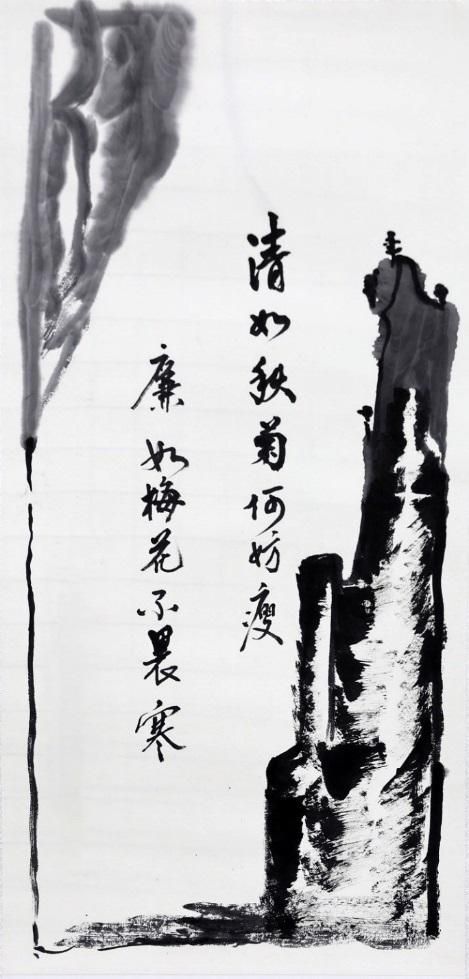 清如秋菊何妨瘦
廉如梅花不畏寒